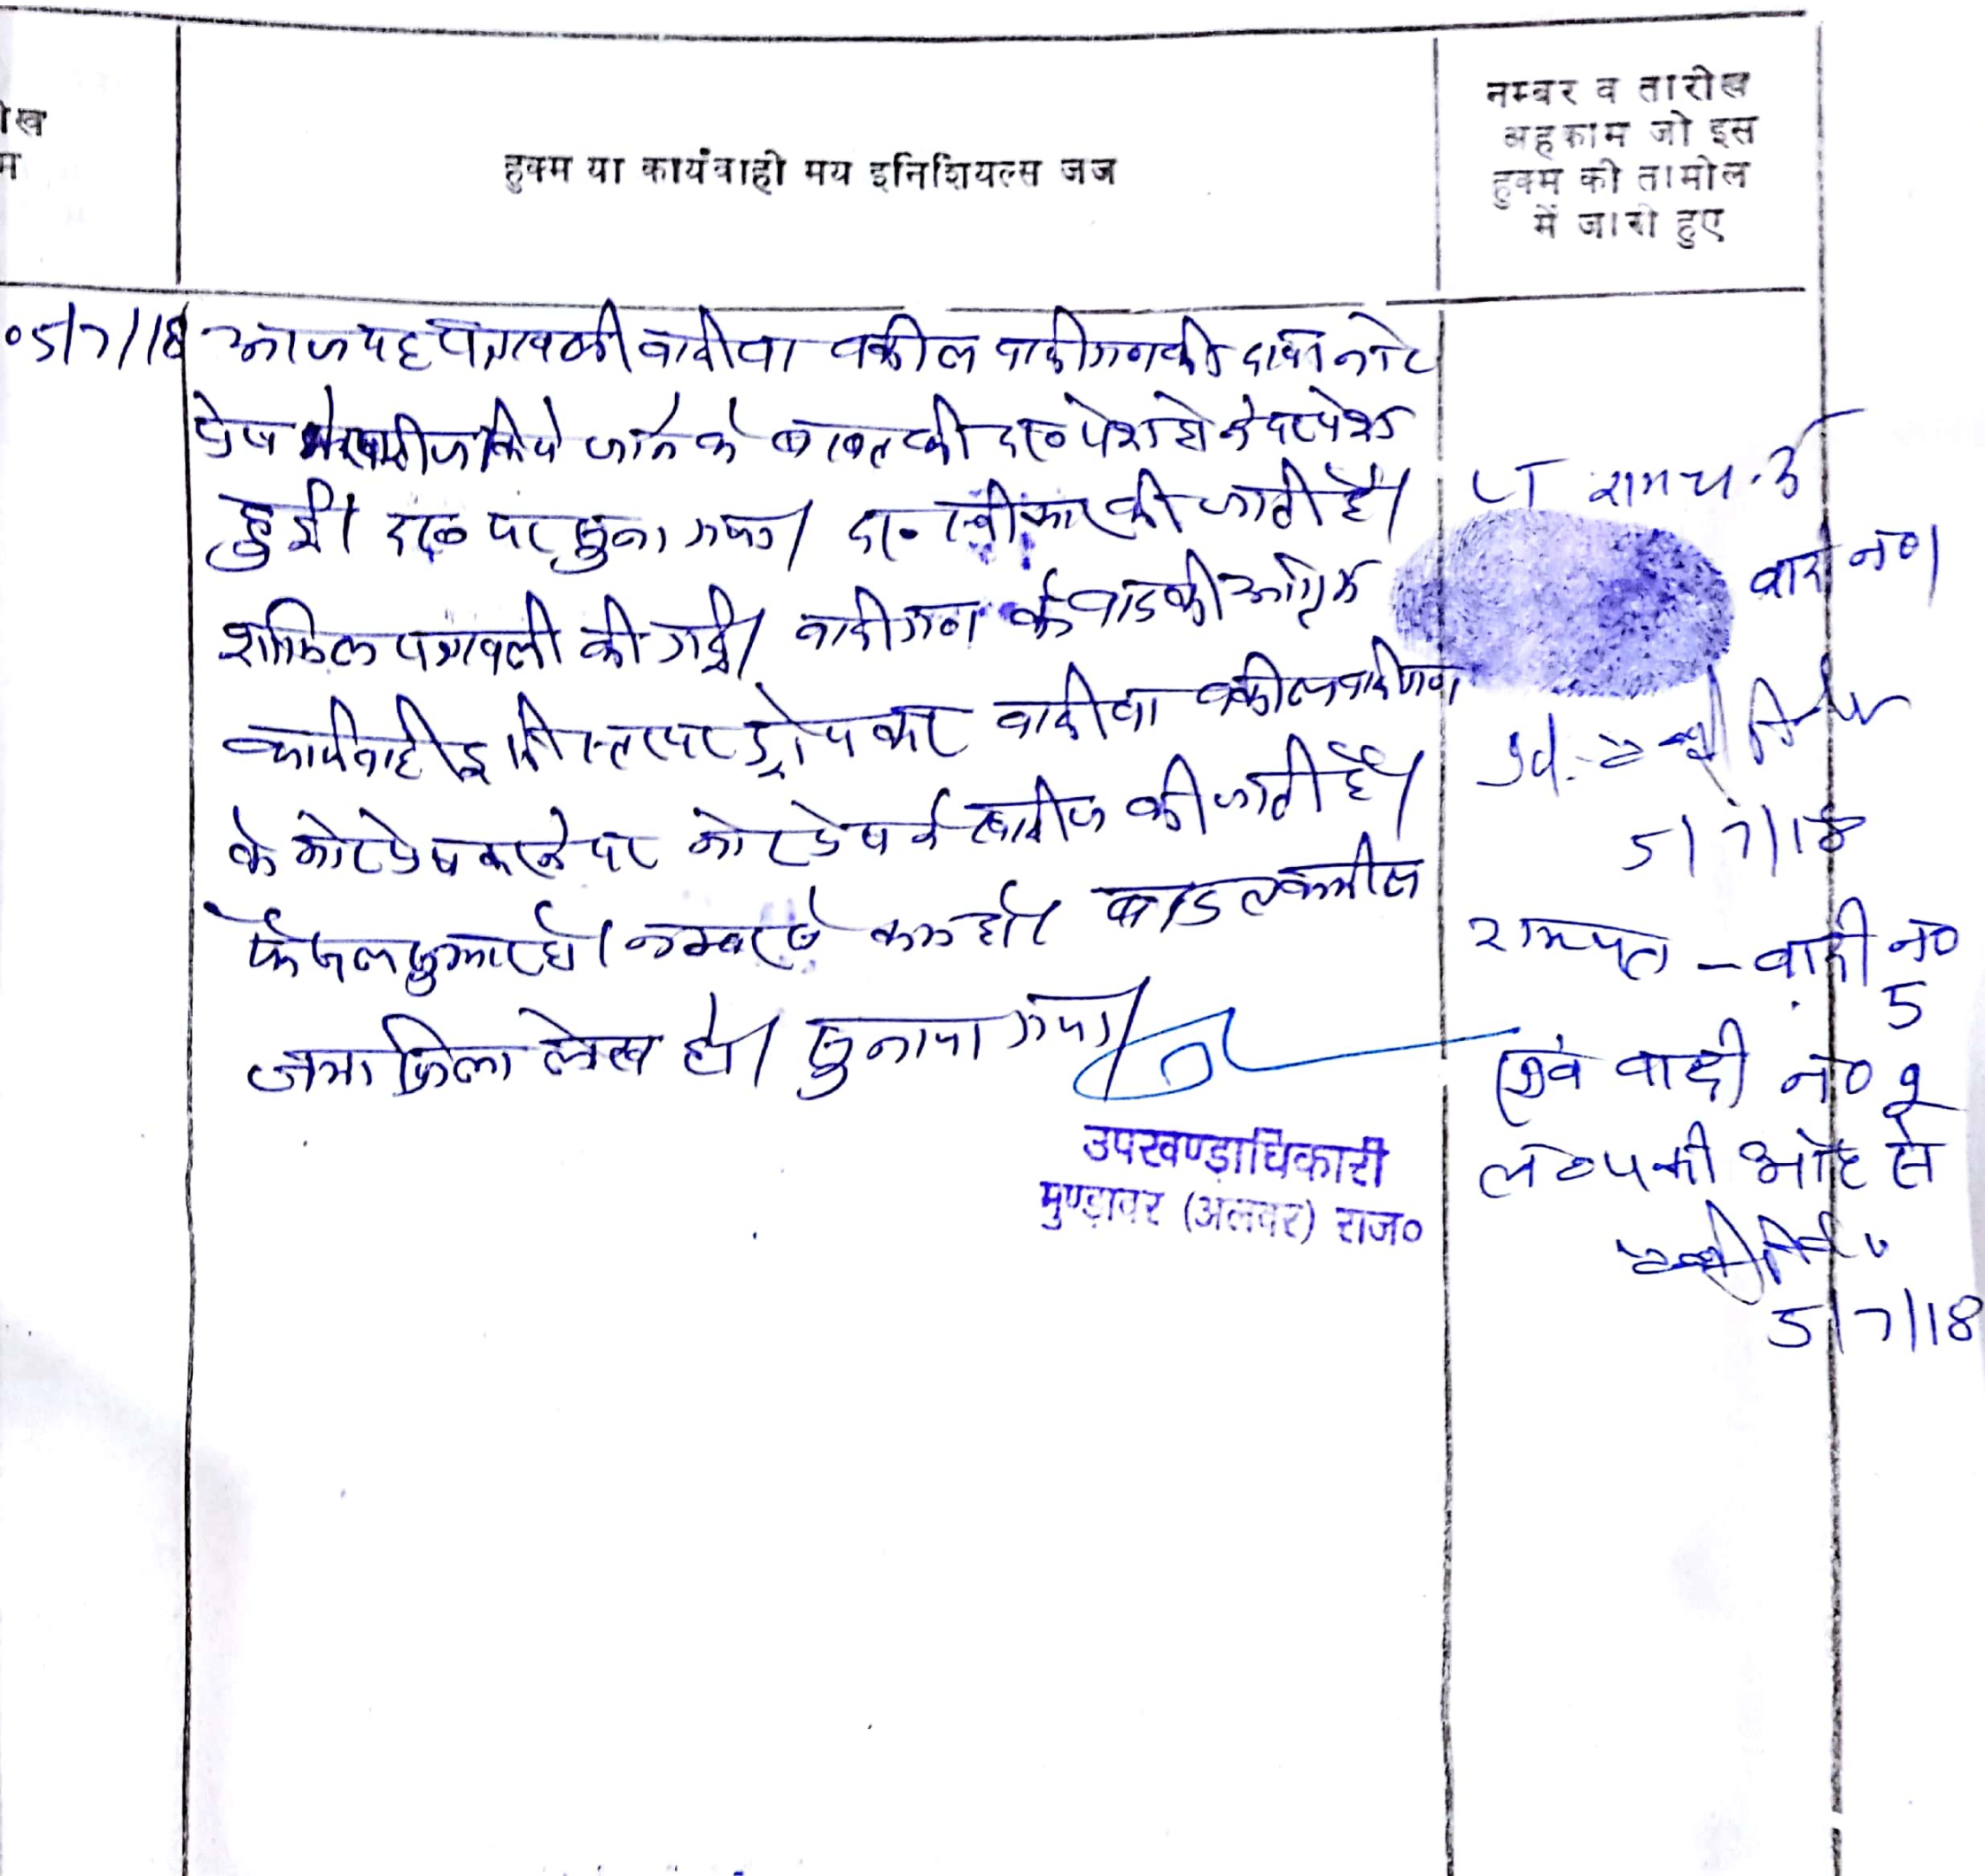 ीख
म
हुक्म या कार्यवाही मय इनिशियल्स जज
नम्बर व तारीख
अहकाम जो इस
हुक्म की तामील
में जारी हुए
05/7/18 आज यह पत्रावली वादी वा वकील वादीगण की दावा नोट
प्रेस में खारीज किये जाने के बाबत की द० पेश होने पर पेश
हुई। द० पर सुना गया। द० स्वीकार की जाती है।
शामिल पत्रावली की गई। वादीगण के वाद की अग्रिम
कार्यवाही इसी स्तर पर ड्रोप कर वादी वा वकील वादीगण
के नोट प्रेस करने पर नोट प्रेस में खारीज की जाती है।
फैसल शुमार हो। नम्बर से कम हो। बाद तकमील
जमा जिला लेख हो। सुनाया गया।
उपखण्डाधिकारी
मुण्डावर (अलवर) राज०
रामच
वादी न०1
5/7/18
रामपत - वादी न०
5
एवं वादी न० 2
की ओर से
5/7/18